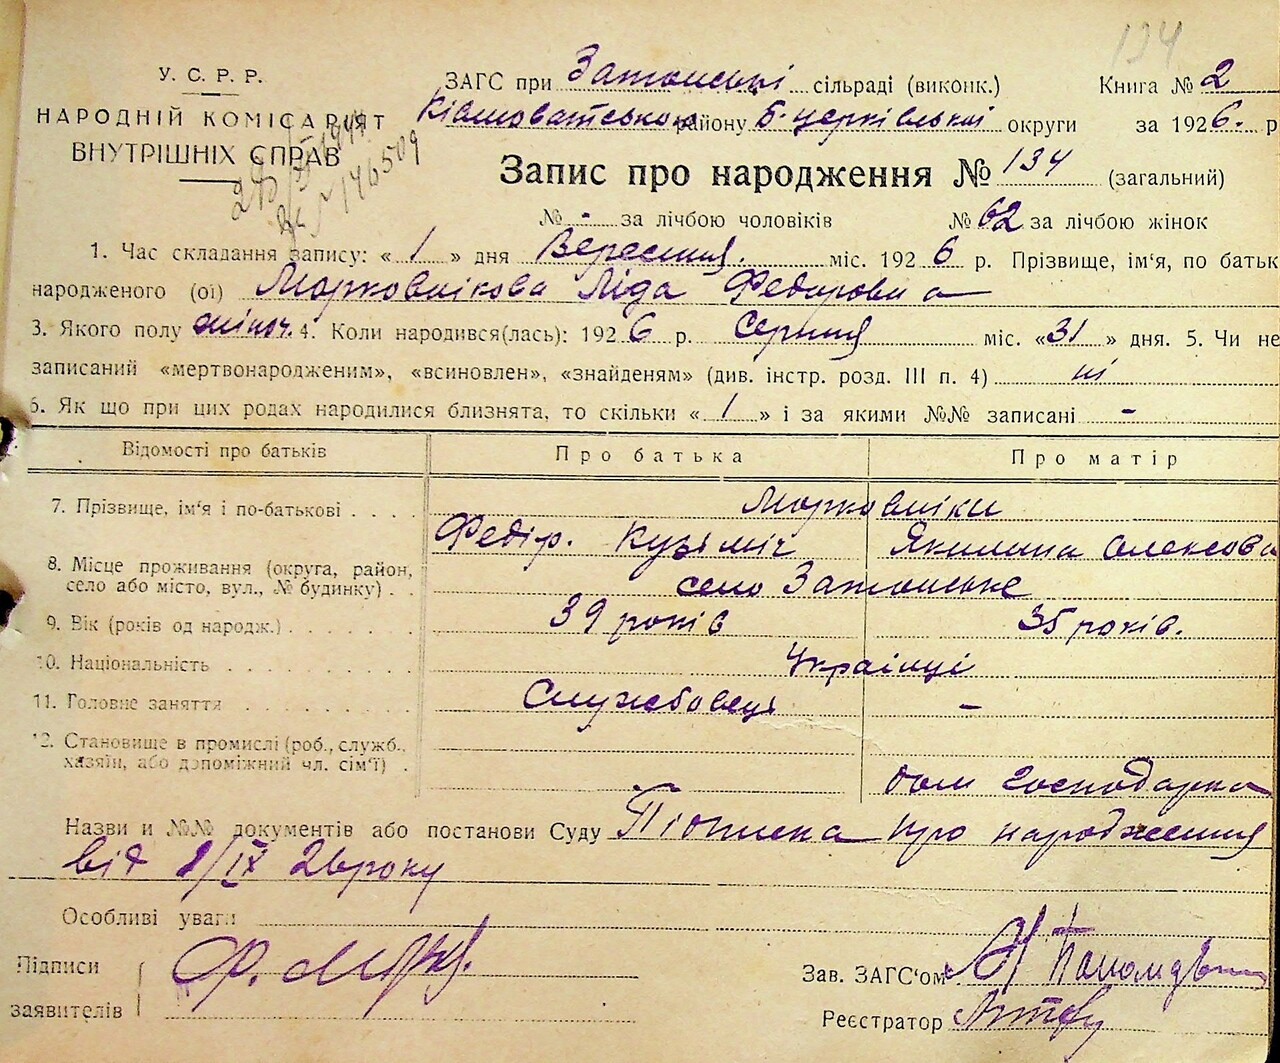 134
У. С. Р. Р.
НАРОДНІЙ КОМІСАРІЯТ
ВНУТРІШНІХ СПРАВ
146509
ЗАГС при Затонські сільраді (виконк.) Книга № 2
району Б-церківської округи за 1926. р
Запис про народження № 134 (загальний)
№ - за лічбою чоловіків № 62 за лічбою жінок
1. Час складання запису: « 1 » дня Вересня. міс. 1926 р. Прізвище, ім'я, по батьк
народженого (ої) Морковнікова Ліда Федоровна
3. Якого полу жіноч. 4. Коли народився(лась): 1926 р. Серпня міс. «31» дня. 5. Чи не
записаний «мертвонародженим», «всиновлен», «знайденям» (див. інстр. розд. III п. 4) ні
6. Як що при цих родах народилися близнята, то скільки « 1 » і за якими №№ записані -
Відомості про батьків Про батька Про матір
7. Прізвище, ім'я і по-батькові . . . . Морковніки
Федір. Кузьміч Якилина Олексєєв
8. Місце проживання (округа, район,
село або місто, вул., № будинку) . . село Затонське
9. Вік (років од народж.) . . . . . . . 39 років 35 років.
10. Національність . . . . . . . . . Українці
11. Головне заняття . . . . . . . . . Службовець -
12. Становище в промислі (роб., служб.,
хазяїн, або допоміжний чл. сім'ї) . дом господарка
Назви и №№ документів або постанови Суду про народження
від 1/IX 26 року
Особливі уваги
Підписи
заявителів
Зав. ЗАГС'ом
Реєстратор